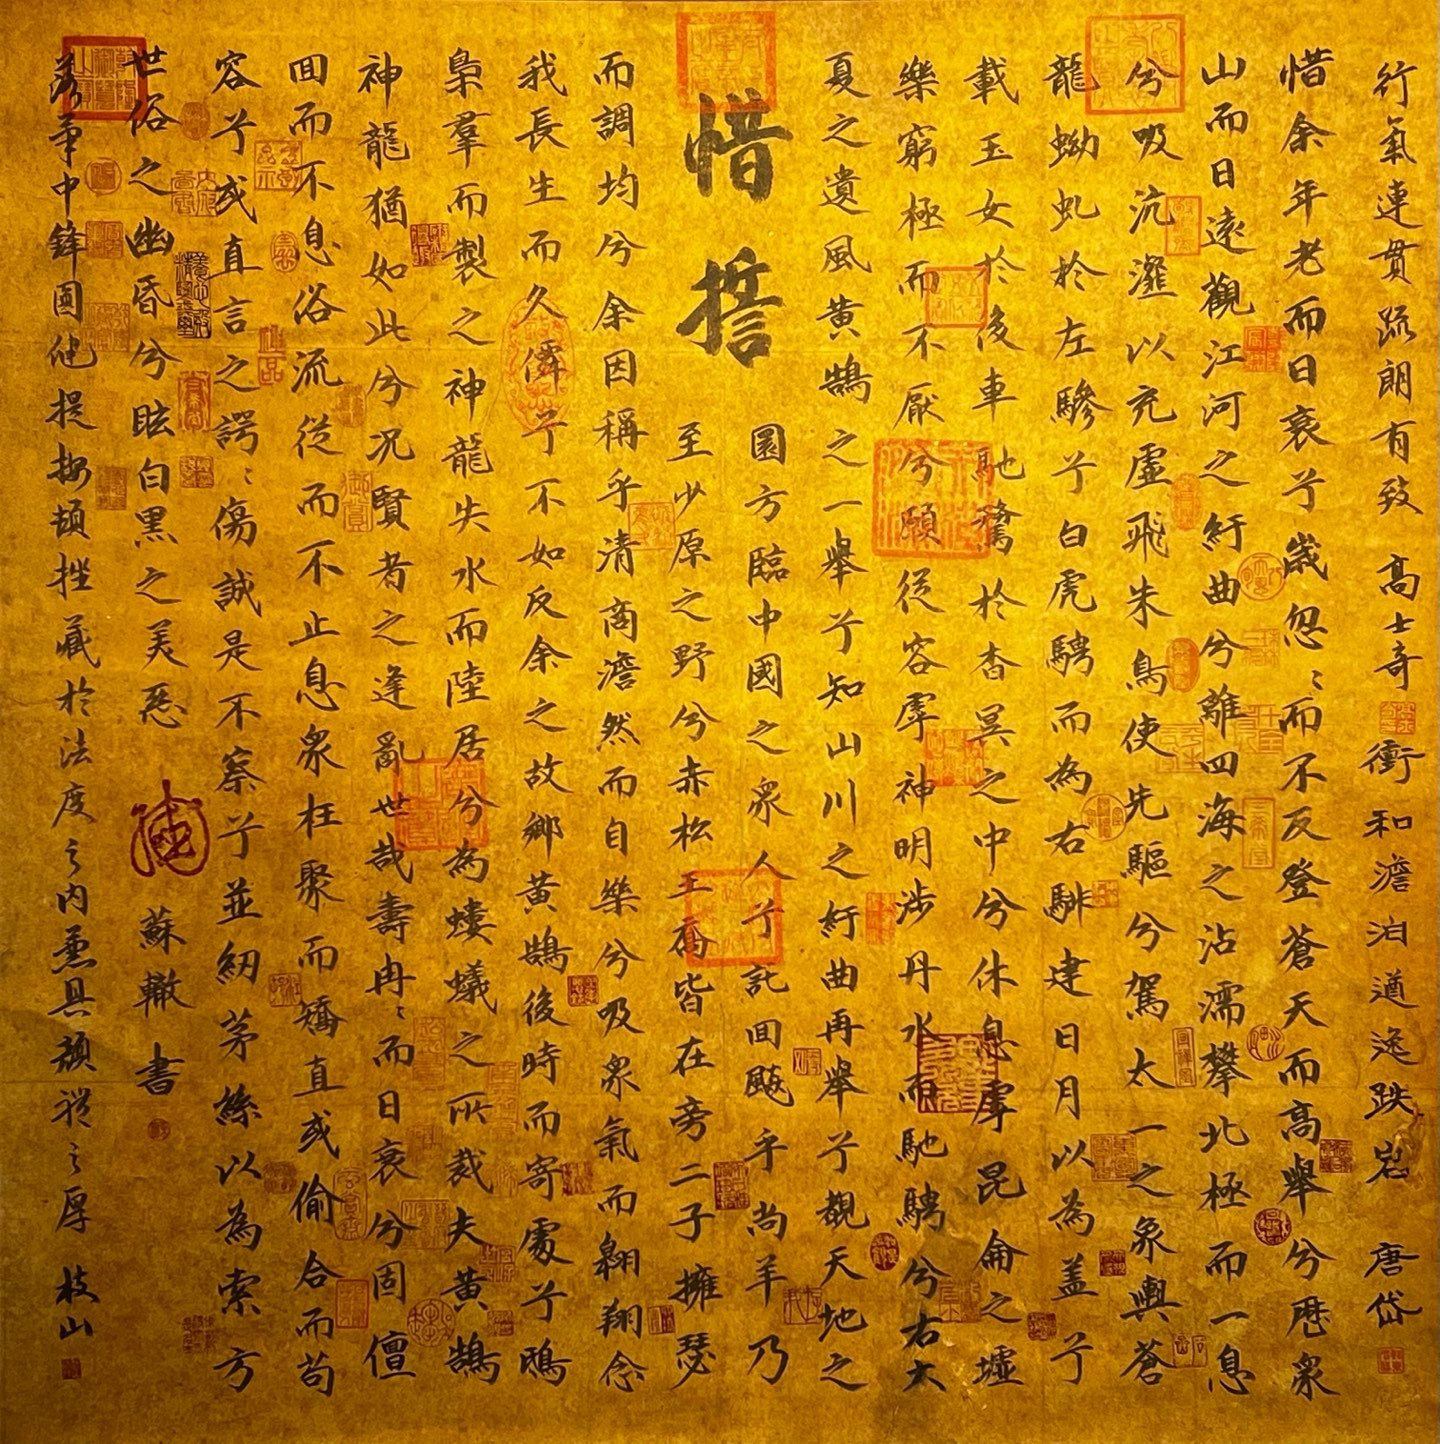 行氣連貫疏朗有致 高士奇 衝和澹泊遒逸跌宕 唐岱
惜余年老而日衰兮歲忽〻而不反登蒼天而高舉兮歷衆
山而日遠觀江河之紆曲兮離四海之沾濡攀北極而一息
兮吸沆瀣以充虛飛朱鳥使先驅兮駕太一之象輿蒼
龍蚴虬於左驂兮白虎騁而為右騑建日月以為蓋兮
載玉女於後車馳騖於杳冥之中兮休息虖昆侖之墟
樂窮極而不厭兮願從容虖神明涉丹水而馳騁兮右大
夏之遺風黃鵠之一舉兮知山川之紆曲再舉兮觀天地之
惜誓
圜方臨中國之衆人兮託回飈乎尚羊乃
至少原之野兮赤松王喬皆在旁二子擁瑟
而調均兮余因稱乎清商澹然而自樂兮吸衆氣而翱翔念
我長生而久僊兮不如反余之故鄉黃鵠後時而寄處兮鴟
梟羣而製之神龍失水而陸居兮為螻蟻之所裁夫黃鵠
神龍猶如此兮况賢者之逢亂世哉壽冉〻而日衰兮固儃
回而不息俗流從而不止息衆枉聚而矯直或偷合而苟
容兮或直言之諤〻傷誠是不察兮並紉茅絲以為索方
世俗之幽昏兮眩白黑之美惡 蘇轍書
中鋒圓 提按頓挫藏於法度之內兼具顏 之厚 枝山